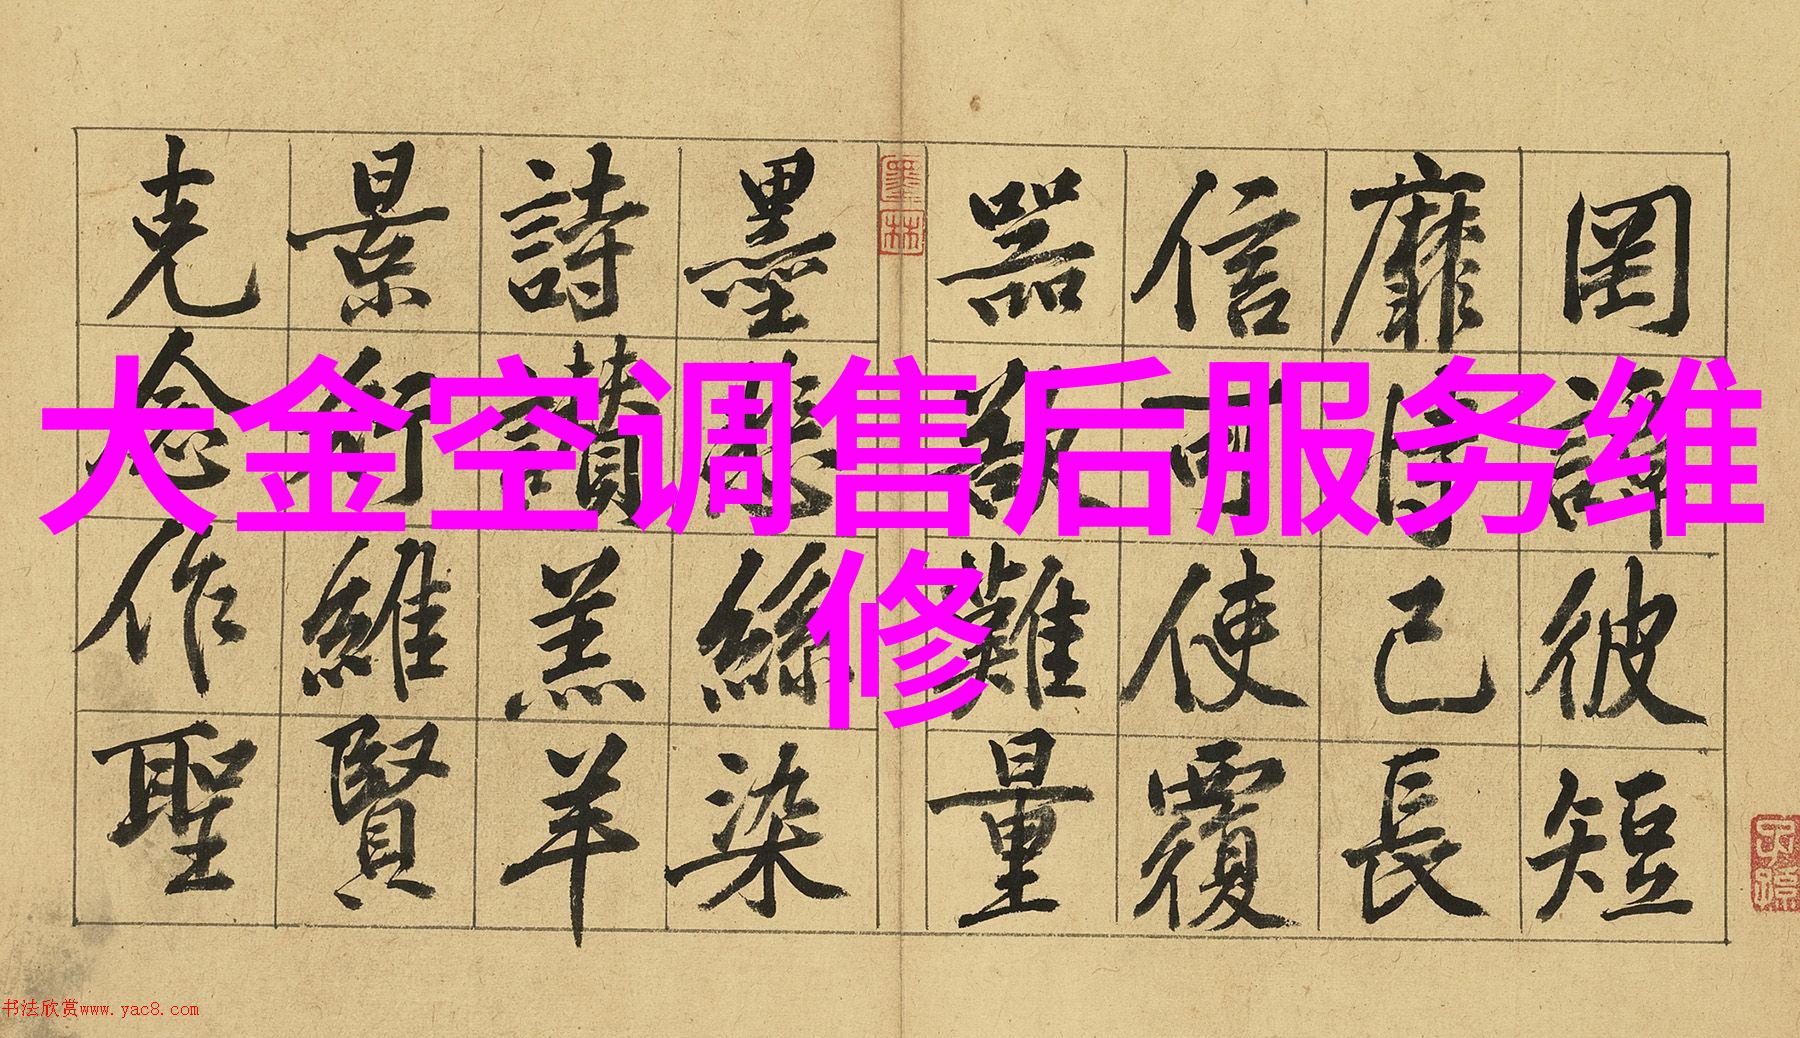 大金空调售后服务维
修
罔譚彼短
靡恃己長
信可使覆
器欲難量
墨林
墨悲絲染
詩讚羔羊
景行維賢
克念作聖
书法欣赏www.yac8.com